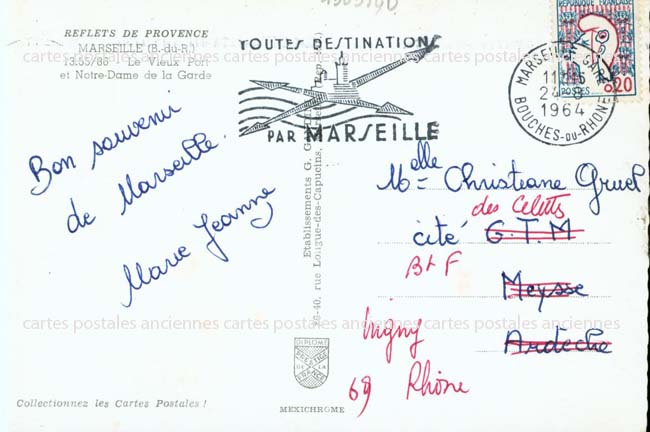 REFLETS DE PROVENCE
MARSEILLE (B.-du-R.)
13.55/86 - Le Vieux Port
et Notre-Dame de la Garde
TOUTES DESTINATIONS
PAR MARSEILLE
RÉPUBLIQUE FRANÇAISE
0,20
MARSEILLE GARE
24-8
1964
BOUCHES-DU-RHONE
Bon souvenir
de Marseille.
Marie Jeanne
Etablissements G.
38-40, rue Longue-des-Capucins,
Melle Christiane Gruel
des Celetts
cité G.T.M
Bt F
Meysse
Irigny
Ardèche
69 Rhône
DIPLOME
PRESTIGE
DE LA
FRANCE
MEXICHROME
Collectionnez les Cartes Postales !
cartes postales anciennes cartes postales anciennes cartes postales anciennes
cartes postales anciennes cartes postales anciennes cartes postales anciennes